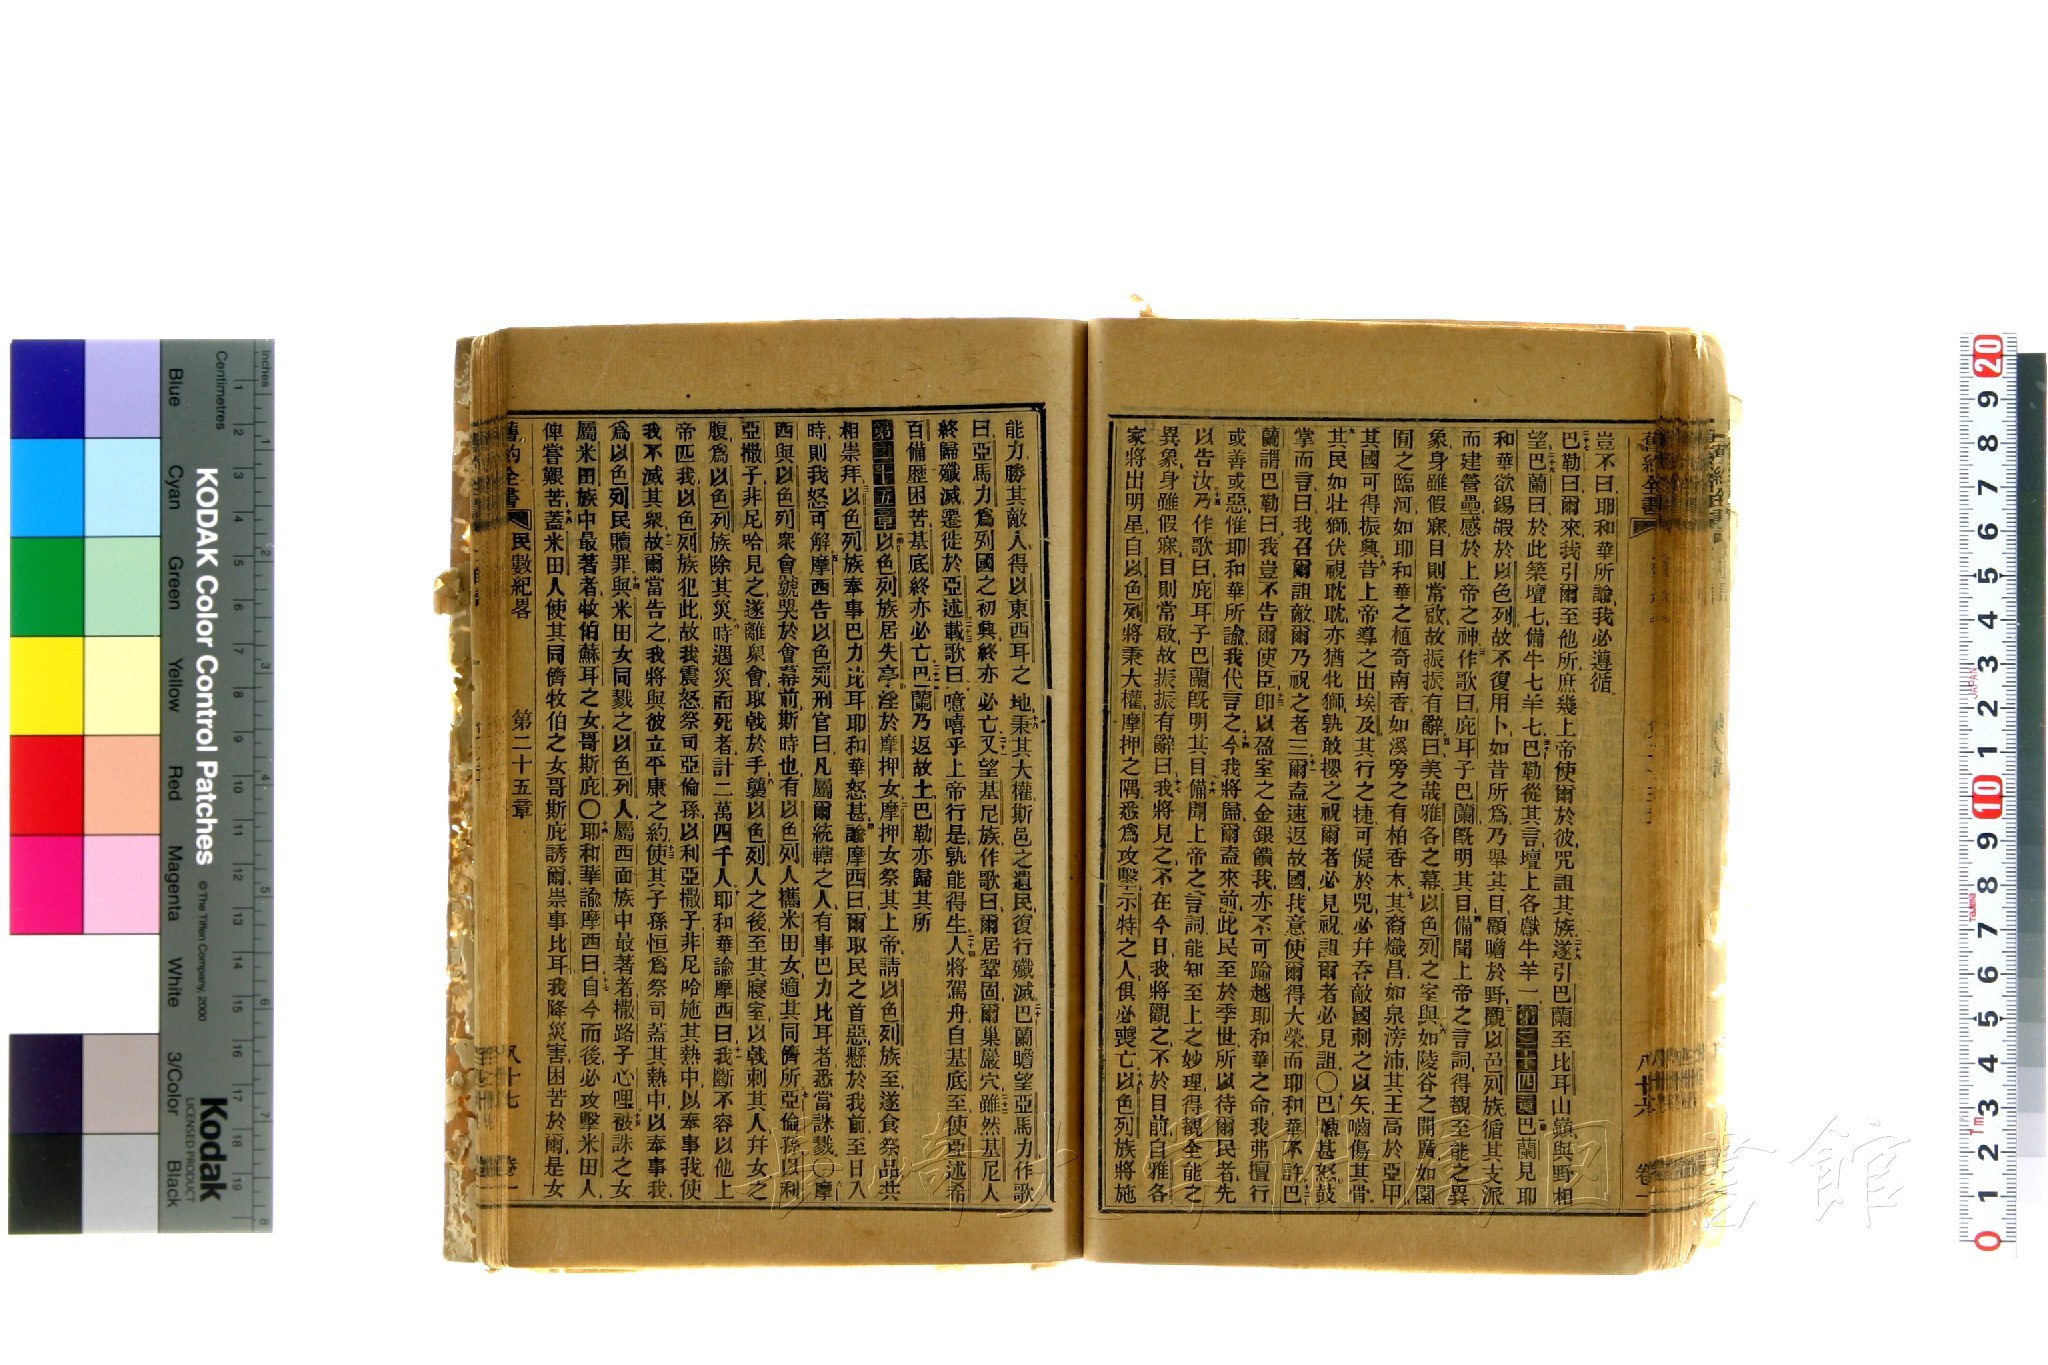 豈不曰耶和華所諭我必遵循
巴勒曰爾來我引爾至他所庶幾上帝使爾於彼咒詛其族遂引巴蘭至比耳山巔與野相
望巴蘭曰於此築壇七備牛七羊七巴勒從其言壇上各獻牛羊一第二十四章巴蘭見耶
和華欲錫嘏於以色列故不復用卜如昔所爲乃舉其目顧瞻於野觀以色列族循其支派
而建營壘感於上帝之神作歌曰庇耳子巴蘭旣明其目備聞上帝之言詞得覩至能之異
象身雖假寐目則常啟故振振有辭曰美哉雅各之幕以色列之室與如陵谷之開廣如園
囿之臨河如耶和華之植奇南香如溪旁之有柏香木其裔熾昌如泉滂沛其王高於亞甲
其國可得振興昔上帝導之出埃及其行之捷可儗於兕必幷吞敵國刺之以矢嚙傷其骨
其民如壯獅伏視耽耽亦猶牝獅孰敢攖之祝爾者必見祝詛爾者必見詛〇巴勒甚怒鼓
掌而言曰我召爾詛敵爾乃祝之者三爾盍速返故國我意使爾得大榮而耶和華不許巴
蘭謂巴勒曰我豈不告爾使臣卽以盈室之金銀饋我亦不可踰越耶和華之命我弗擅行
或善或惡惟耶和華所諭我代言之今我將歸爾盍來前此民至於季世所以待爾民者先
以告汝乃作歌曰庇耳子巴蘭旣明其目備聞上帝之言詞能知至上之妙理得觀全能之
異象身雖假寐目則常啟故振振有辭曰我將見之不在今日我將觀之不於目前自雅各
家將出明星自以色列將秉大權摩押之隅悉爲攻擊示特之人俱必喪亡以色列族將施
能力勝其敵人得以東西耳之地秉其大權斯邑之遺民復行殲滅巴蘭瞻望亞馬力作歌
曰亞馬力爲列國之初興終亦必亡又望基尼族作歌曰爾居鞏固爾巢巖穴雖然基尼人
終歸殲滅遷徙於亞述載歌曰噫嘻乎上帝行是孰能得生人將駕舟自基底至使亞述希
百備歷困苦基底終亦必亡巴蘭乃返故土巴勒亦歸其所
第二十五章以色列族居失亭淫於摩押女摩押女祭其上帝請以色列族至遂食祭品共
相崇拜以色列族奉事巴力比耳耶和華怒甚諭摩西曰爾取民之首惡懸於我前至日入
時則我怒可解摩西告以色列刑官曰凡屬爾統轄之人有事巴力比耳者悉當誅戮〇摩
西與以色列衆會號哭於會幕前斯時也有以色列人攜米田女適其同儕所亞倫孫以利
亞撒子非尼哈見之遂離衆會取戟於手襲以色列人之後至其寢室以戟刺其人幷女之
腹爲以色列族除其災時遇災而死者計二萬四千人耶和華諭摩西曰我斷不容以他上
帝匹我以色列族犯此故我震怒祭司亞倫孫以利亞撒子非尼哈施其熱中以奉事我使
我不滅其衆故爾當告之我將與彼立平康之約使其子孫恒爲祭司蓋其熱中以奉事我
爲以色列民贖罪與米田女同戮之以色列人屬西面族中最著者撒路子心哩被誅之女
屬米田族中最著者牧伯蘇耳之女哥斯庇〇耶和華諭摩西曰自今而後必攻擊米田人
俾嘗艱苦蓋米田人使其同儕牧伯之女哥斯庇誘爾崇事比耳我降災害困苦於爾是女
舊約全書 民數紀畧 第二十五章 八十七 卷一
KODAK Color Control Patches
© The Tiffen Company, 2000
Kodak
LICENSED PRODUCT
Inches
Centimetres
Blue Cyan Green Yellow Red Magenta White 3/Color Black
JAPAN
Tajima